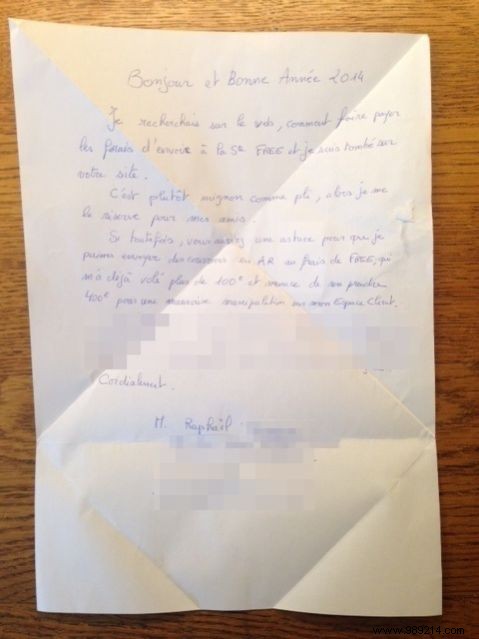 Bonjour et Bonne Année 2014
Je recherchais sur le web, comment faire payer
les frais d'envoie à la Sté FREE et je suis tombé sur
votre site.
C'est plutôt mignon comme pli, alors je me
le réserve pour mes amis.
Si toutefois, vous auriez une astuce pour que je
puisse envoyer des courriers en AR au frais de FREE, qui
m'a déjà volé plus de 100€ et menace de m'en prendre
400€ pour une mauvaise manipulation sur mon Espace Client.
Cordialement.
M. Raphaël
www.989214.com